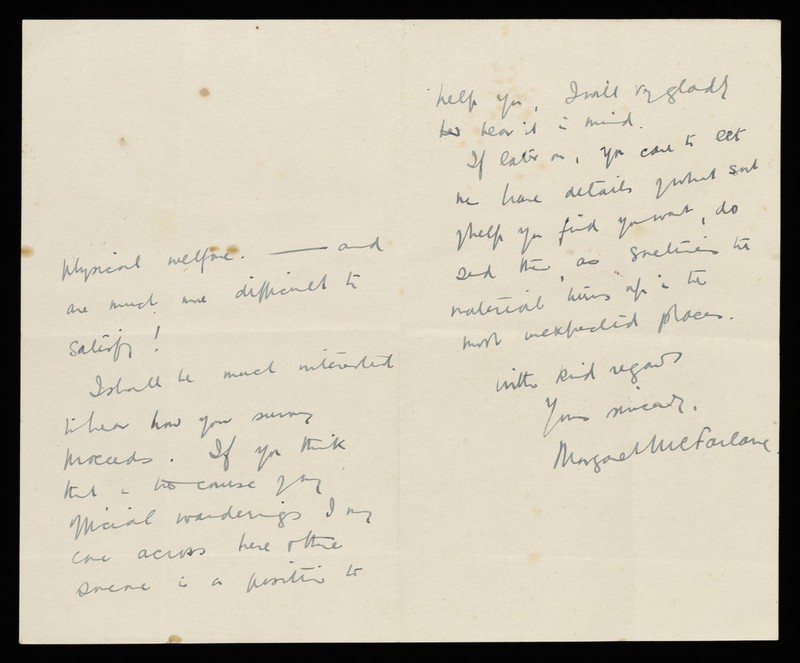 physical welfare. — and
are much more difficult to
satisfy!
I shall be much interested
to hear how your survey
proceeds. If you think
that in the course of my
official wanderings I may
come across here & there
someone in a position to
help you, I will very gladly
bear it in mind.
If later on, you care to let
me have details of what sort
of help you find you want, do
send them, as sometimes the
material turns up in the
most unexpected places.
With kind regards
Yours sincerely,
Margaret McFarlane.